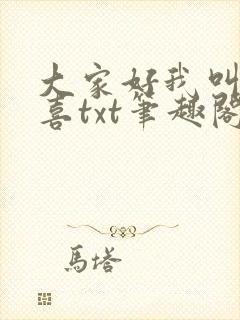 大家好我叫
喜txt筆趣閣
馬塔